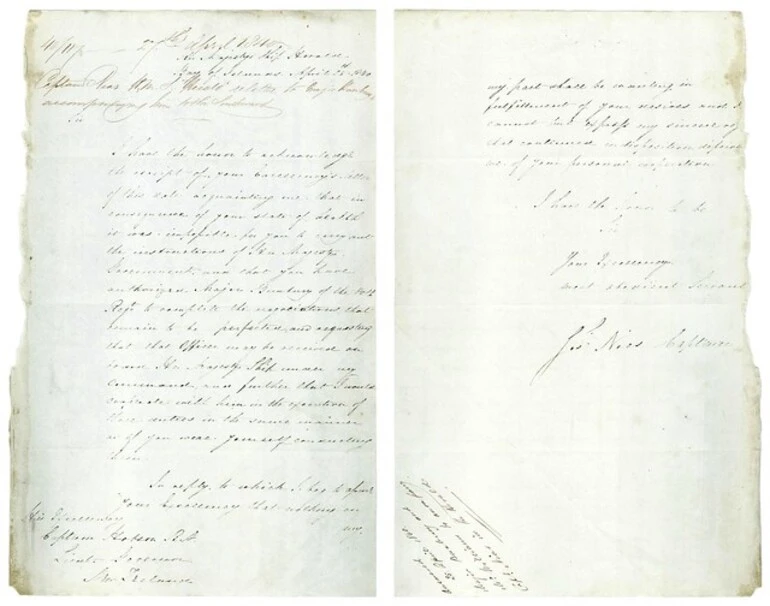 April 1840
Her Majesty's Ship Herald
Bay of Islands April 1840
Captain Nias H.M.S. Herald relative to Major Bunbury
accompanying him to the Southward
Sir
I have the honor to acknowledge
the receipt of your Excellency's letter
of this date acquainting me that in
consequence of your state of health
it was impossible for you to carry out
the instructions of Her Majesty's
Government, and that you have
authorized Major Bunbury of the 80th
Regt to complete the negociations that
remain to be perfected, and requesting
that that Officer may be received on
board Her Majesty's Ship under my
Command, and further that I would
cooperate with him in the execution of
these duties in the same manner
as if you were yourself conducting
them.
In reply to which I beg to assure
Your Excellency that nothing on
my
His Excellency
Captain Hobson R.N.
Lieut Governor
New Zealand
my part shall be wanting in
fulfillment of your desires and I
cannot but express my sincere regret
that continued indisposition deprives
me of your personal
I have the honor to be
Sir
Your Excellency's
most obedient Servant
Jos Nias Captain